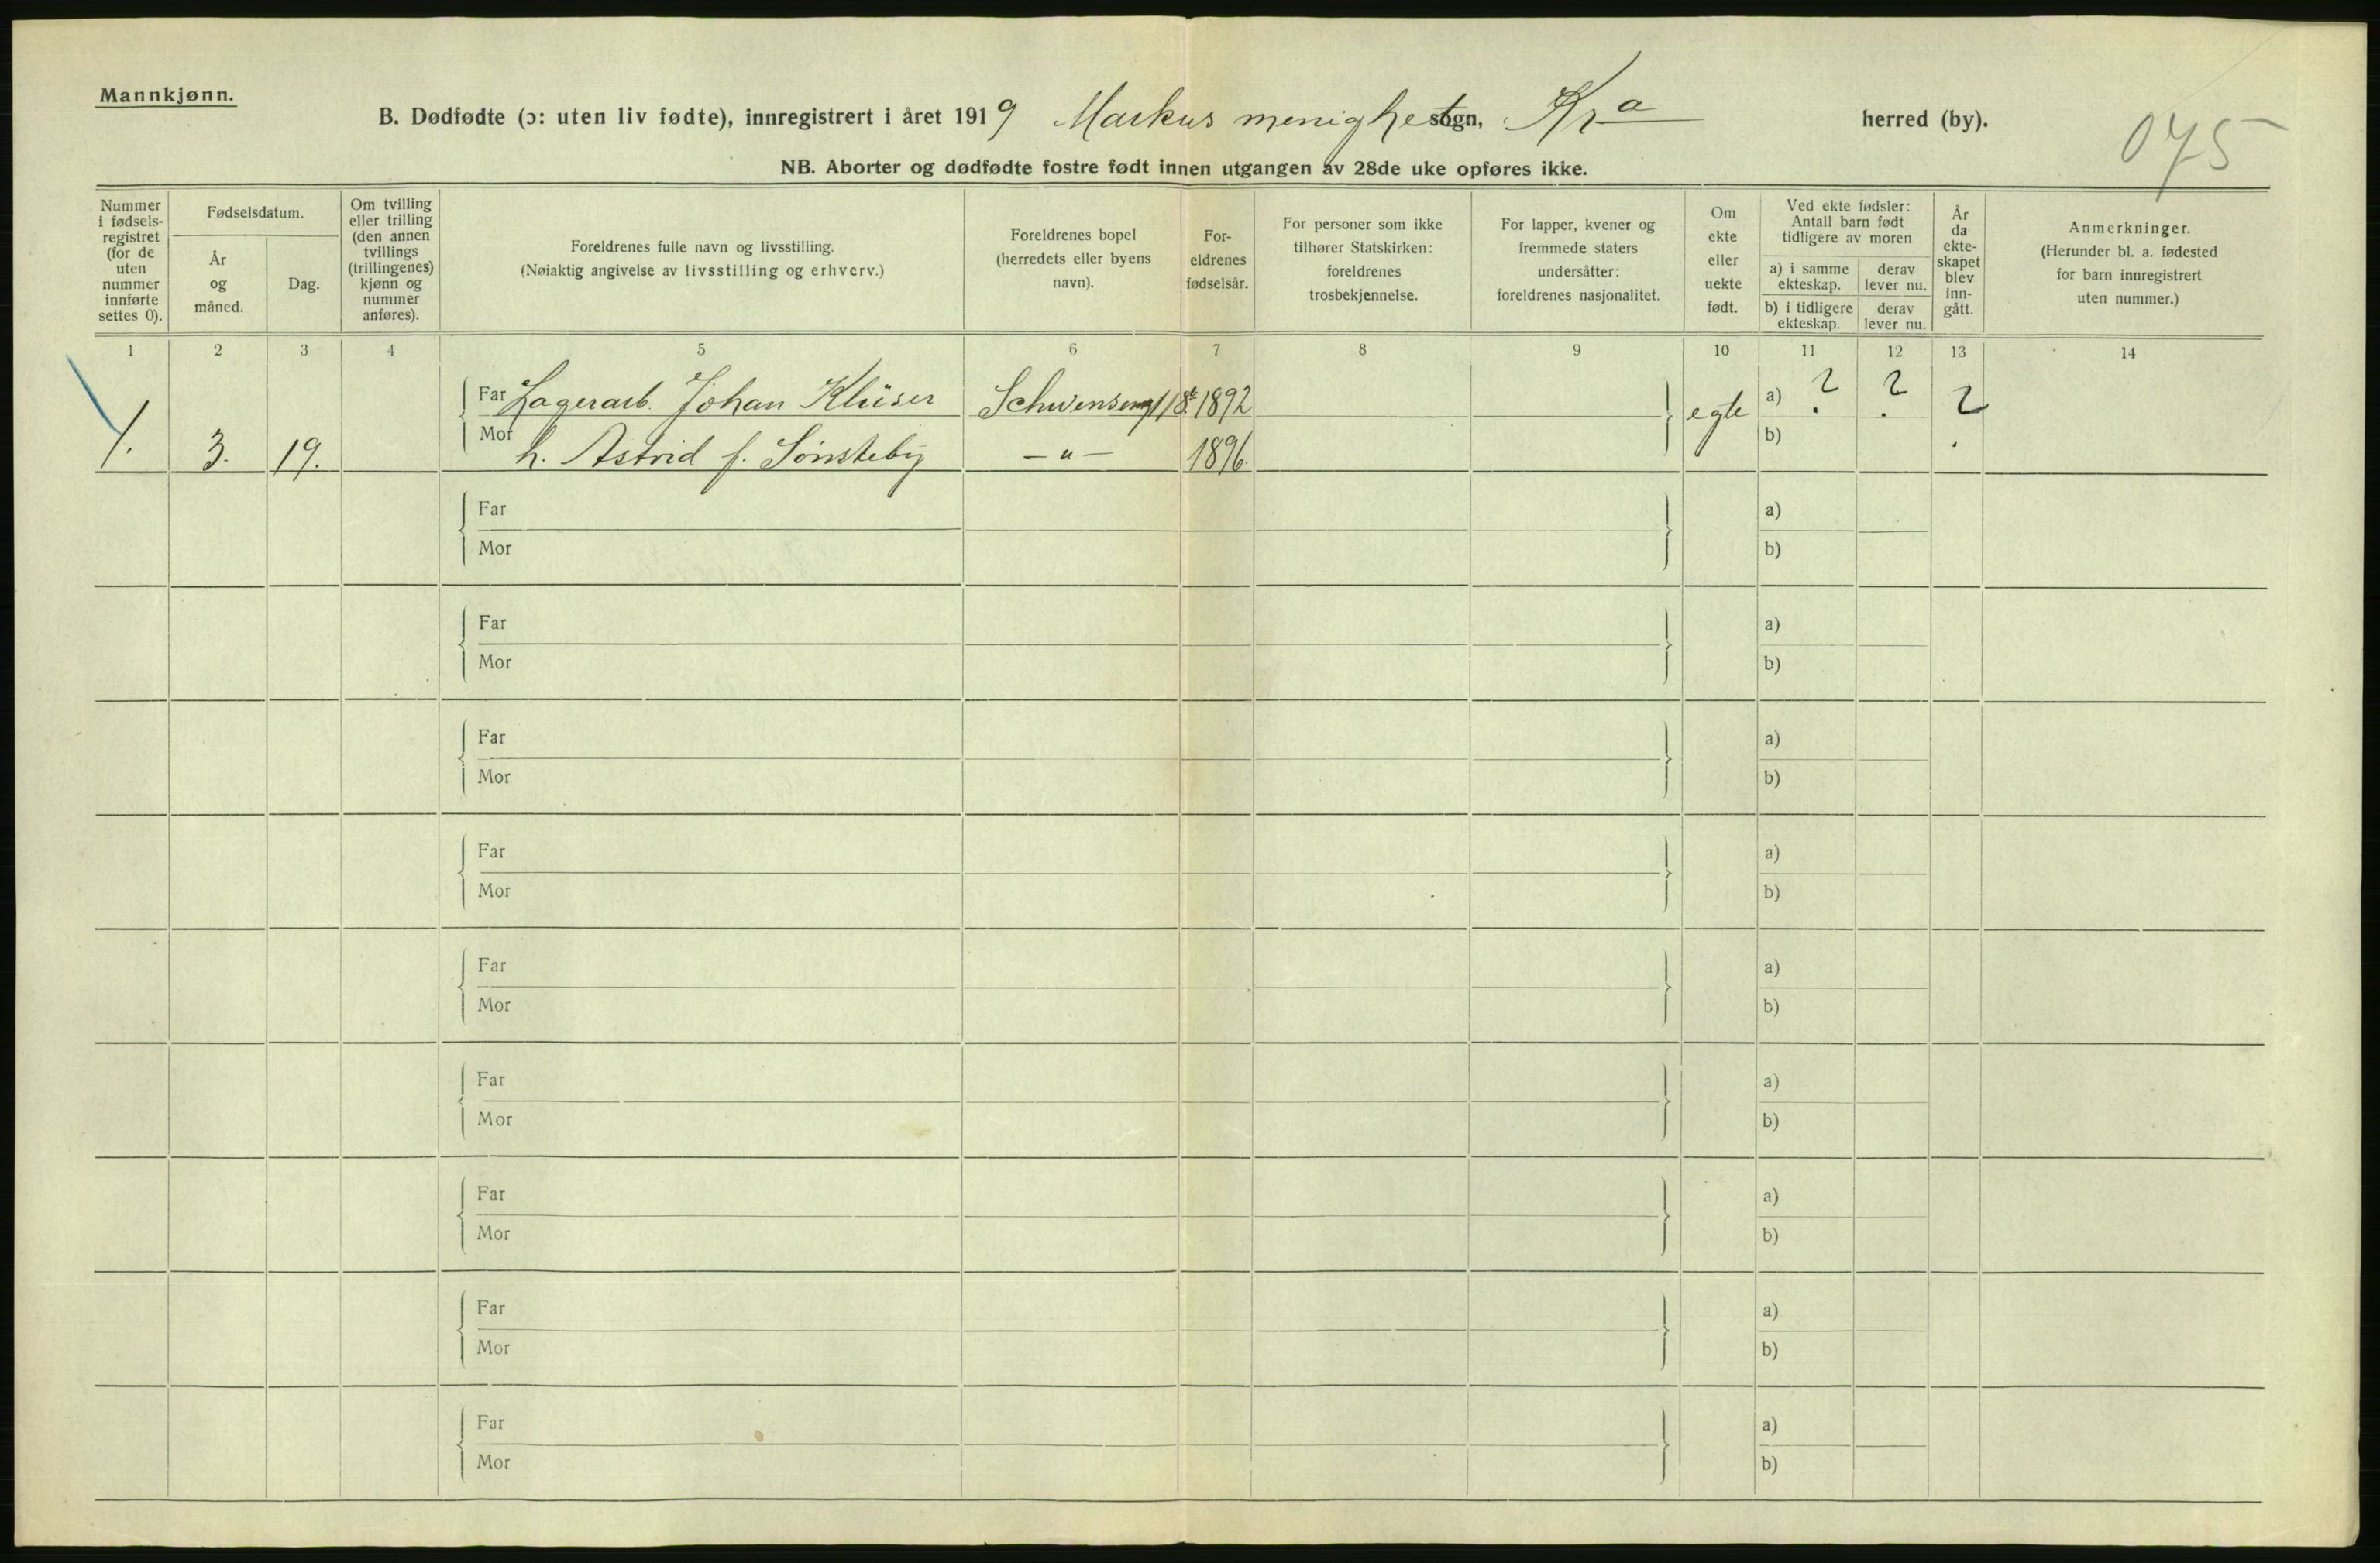 Mannkjønn.
B. Dødfødte (ɔ: uten liv fødte), innregistrert i året 1919 Markus menighet sogn, Kra herred (by).
075
NB. Aborter og dødfødte fostre født innen utgangen av 28de uke opføres ikke.
Nummer i fødsels- registret (for de uten nummer innførte settes 0).
Fødselsdatum.
År og måned.
Dag.
Om tvilling eller trilling (den annen tvillings (trillingenes) kjønn og nummer anføres).
Foreldrenes fulle navn og livsstilling.
(Nøiaktig angivelse av livsstilling og erhverv.)
Foreldrenes bopel (herredets eller byens navn).
For- eldrenes fødselsår.
For personer som ikke tilhører Statskirken: foreldrenes trosbekjennelse.
For lapper, kvener og fremmede staters undersåtter: foreldrenes nasjonalitet.
Om ekte eller uekte født.
Ved ekte fødsler: Antall barn født tidligere av moren
a) i samme ekteskap.
derav lever nu.
b) i tidligere ekteskap.
derav lever nu.
År da ekte- skapet blev inn- gått.
Anmerkninger.
(Herunder bl. a. fødested for barn innregistrert uten nummer.)
1 2 3 4 5 6 7 8 9 10 11 12 13 14
Far Lagerarb. Johan Klüser 1892 egte a) ? ? ?
1. 3. 19. Mor h. Astrid f. Sønsteby — " — 1896. b)
Far a)
Mor b)
Far a)
Mor b)
Far a)
Mor b)
Far a)
Mor b)
Far a)
Mor b)
Far a)
Mor b)
Far a)
Mor b)
Far a)
Mor b)
Far a)
Mor b)